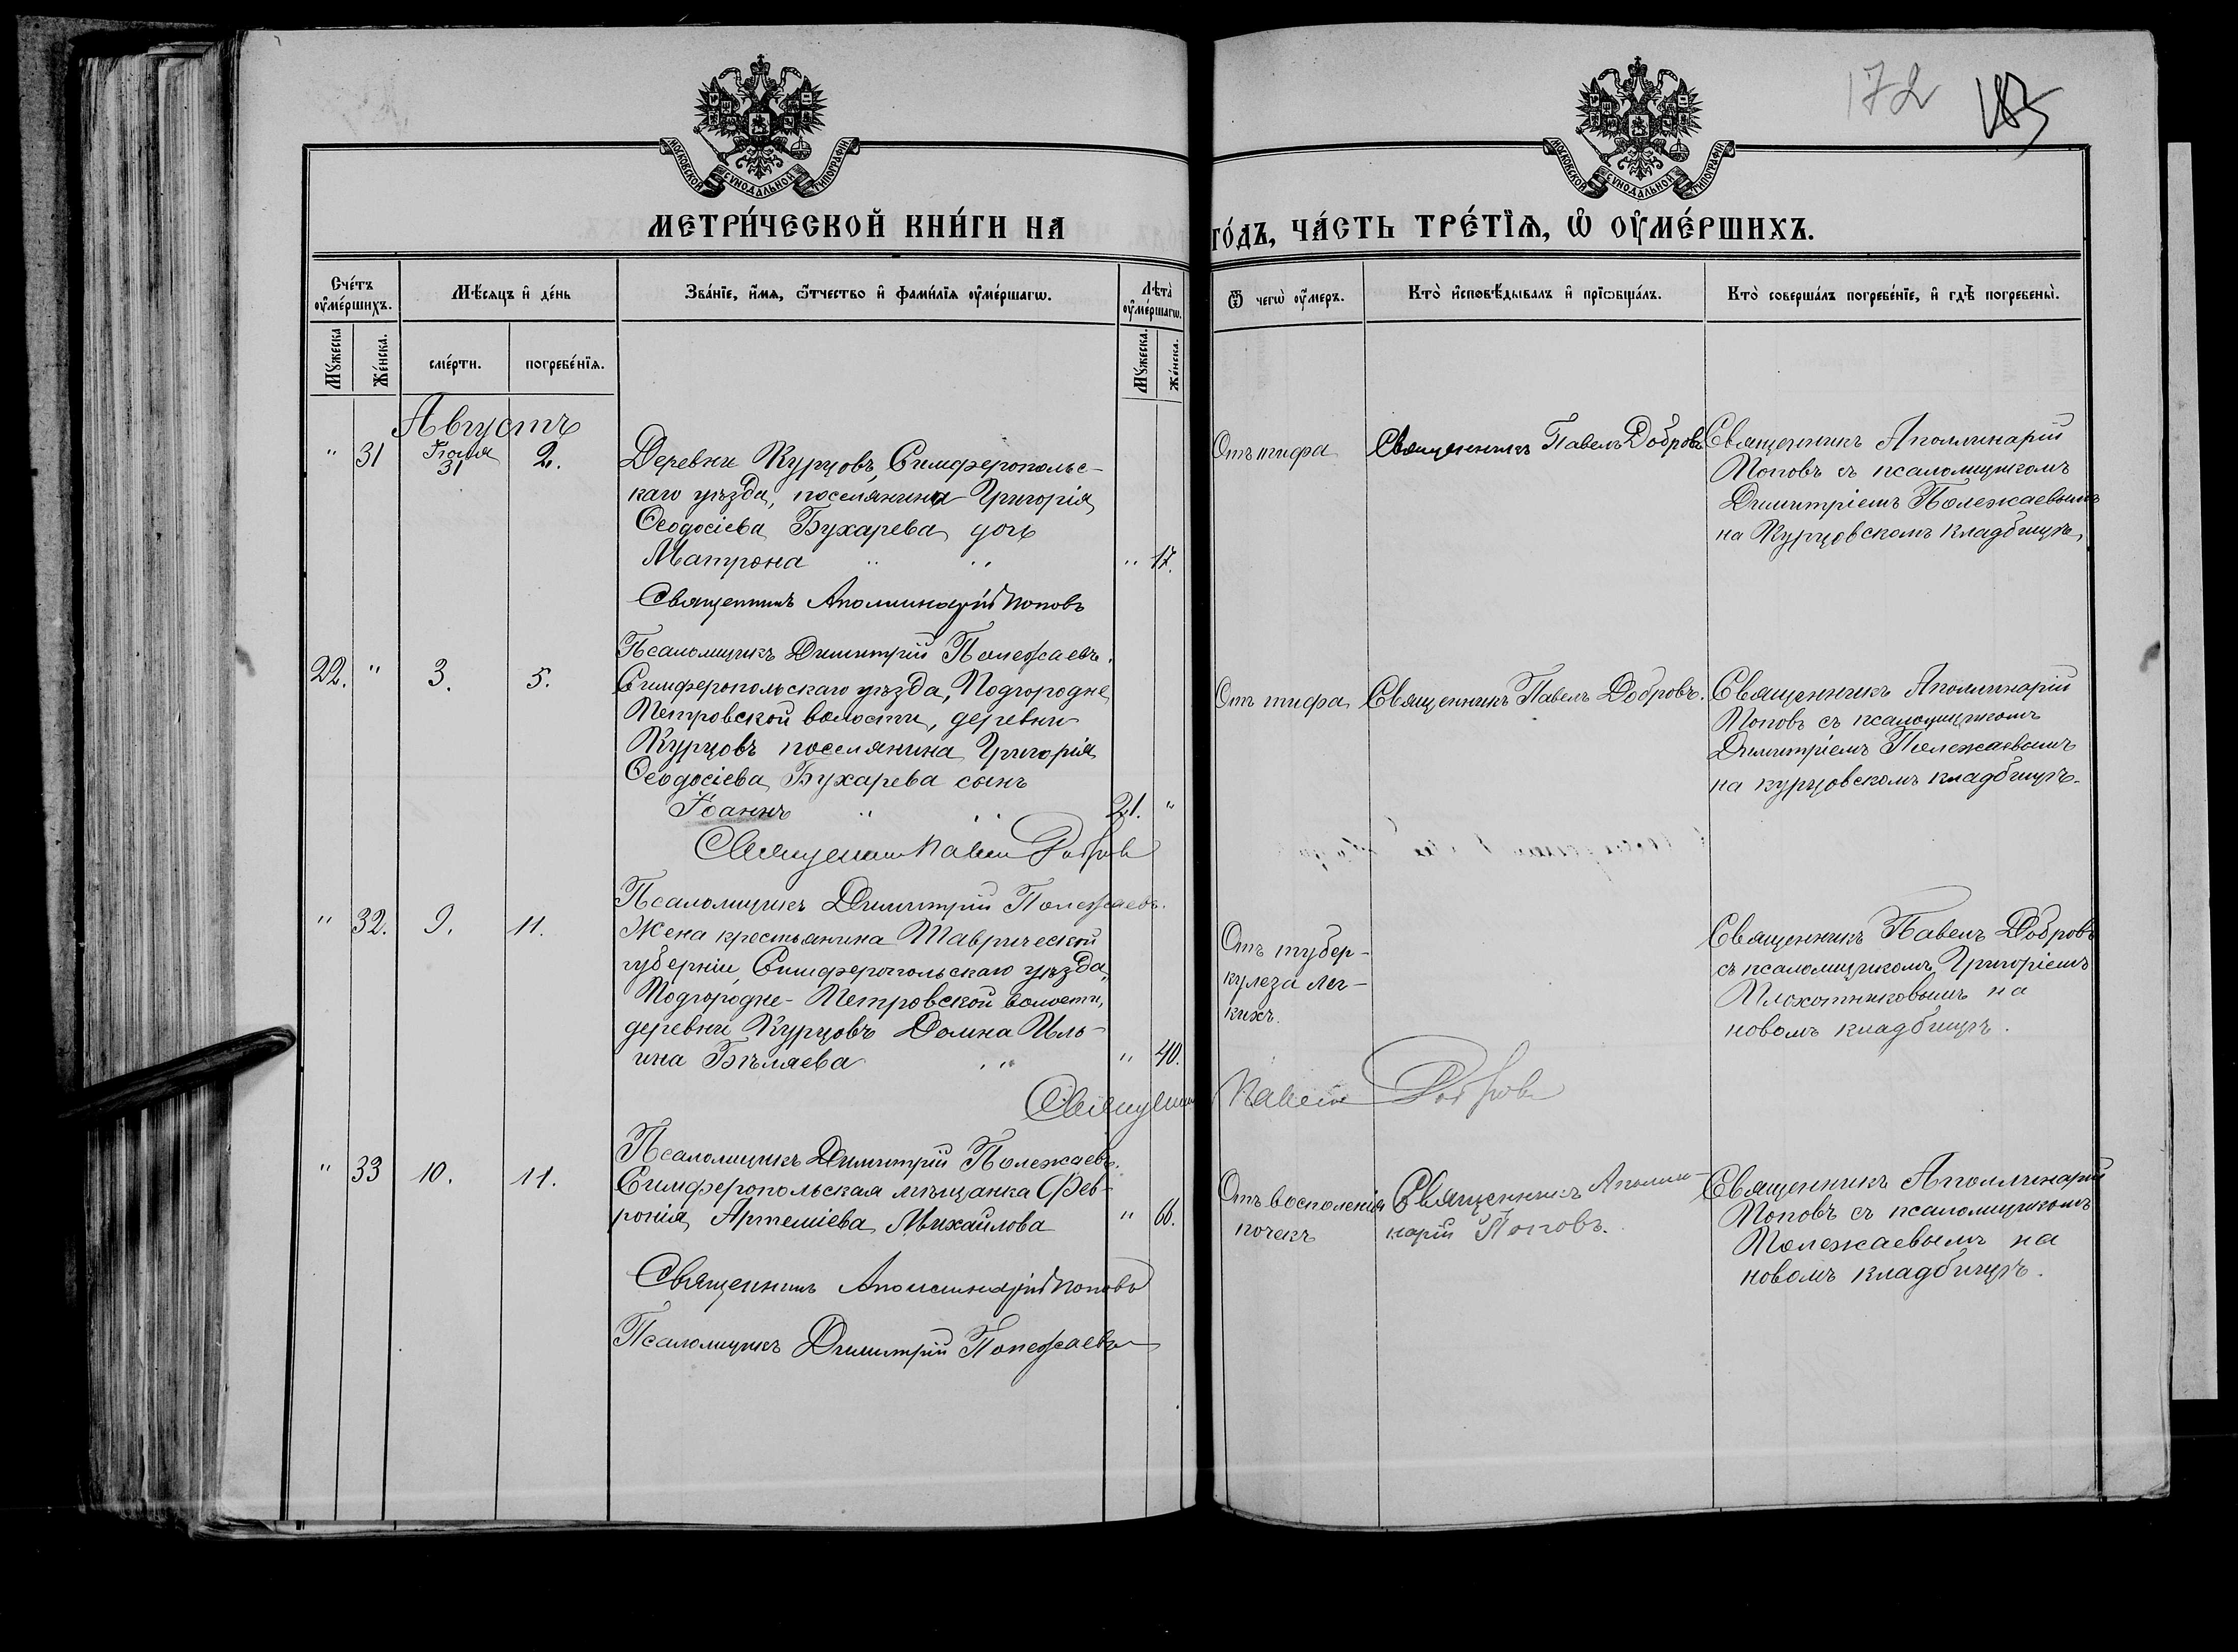 172 183
МОСКОВСКОЙ СѴНОДАЛЬНОЙ ТИПОГРАФІИ
МОСКОВСКОЙ СѴНОДАЛЬНОЙ ТИПОГРАФІИ
МЕТРИ́ЧЕСКОЙ КНИ́ГИ НА
ГО́ДЪ, ЧА́СТЬ ТРЕ́ТЇѦ, Ѡ҆ ОУ҆МЕ́РШИХЪ.
Сче́тъ
оу҆ме́ршихъ.
Мѣ́сѧцъ и҆ де́нь
Зва́нїе, и҆́мѧ, ѻ҆́тчество и҆ фами́лїѧ оу҆ме́ршагѡ.
Лѣта̀
оу҆ме́ршагѡ.
Ѿ чегѡ̀ оу҆́меръ.
Кто̀ и҆сповѣ́дывалъ и҆ прїѡбща́лъ.
Кто̀ соверша́лъ погребе́нїе, и҆ гдѣ̀ погребены̀.
Мꙋ́жеска
Же́нска.
сме́рти.
погребе́нїѧ.
Мꙋ́жеска.
Же́нска.
Августъ
" 31 Іюля 31 2.
Деревни Курцовъ, Симферопольс-
каго уѣзда, поселянина Григорія
Ѳеодосіева Бухарева дочь
Матрона " " " 17.
Отъ тифа
Священникъ Павелъ Добровъ
Священникъ Аполлинарій
Поповъ съ псаломщикомъ
Димитріемъ Полежаевымъ
на Курцовскомъ кладбищѣ.
Священникъ Аполлинарій Поповъ
Псаломщикъ Димитрій Полежаевъ.
22. " 3. 5.
Симферопольскаго уѣзда, Подгородне
Петровской волости, деревни
Курцовъ поселянина Григорія
Ѳеодосіева Бухарева сынъ
Іоаннъ " " 21. "
Отъ тифа
Священникъ Павелъ Добровъ.
Священникъ Аполлинарій
Поповъ съ псаломщикомъ
Димитріемъ Полежаевымъ
на курцовскомъ кладбищѣ.
Священникъ Павелъ Добровъ
Псаломщикъ Димитрій Полежаевъ.
" 32. 9. 11.
Жена крестьянина Таврической
губерніи, Симферопольскаго уѣзда,
Подгородне-Петровской волости,
деревни Курцовъ Домна Иль-
ина Бѣляева " " 40.
Отъ тубер-
кулеза лег-
кихъ.
Священникъ Павелъ Добровъ
съ псаломщикомъ Григоріемъ
Плохотниковымъ на
новомъ кладбищѣ.
Священникъ Павелъ Добровъ
Псаломщикъ Димитрій Полежаевъ.
" 33 10. 11.
Симферопольская мѣщанка Фев-
ронія Артеміева Михайлова " 66.
Отъ воспаленія
почекъ
Священникъ Аполли-
нарій Поповъ.
Священникъ Аполлинарій
Поповъ съ псаломщикомъ
Полежаевымъ на
новомъ кладбищѣ.
Священникъ Аполлинарій Поповъ
Псаломщикъ Димитрій Полежаевъ